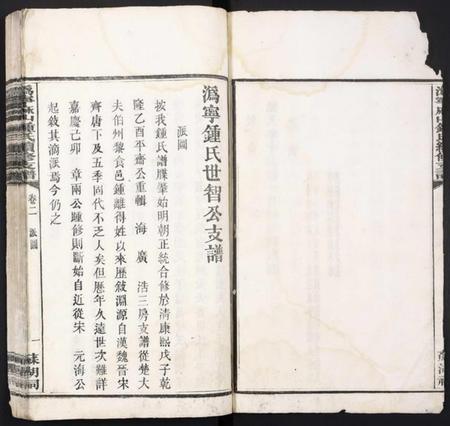 溈寧鍾氏世智公支譜
派圖
按我鍾氏譜牒肇始明朝正統合修於清康熙戊子乾
隆乙酉平齋公重輯 海 廣 浩三房支譜從楚大
夫伯州黎食邑鍾離得姓以來歷敘淵源自漢魏晉宋
齊唐下及五季問代不乏人矣但歷年久遠世次難詳
嘉慶己卯 章兩公踵修則斷始自近從宋 元海公
起敘其滴派焉今仍之
卷二 派圖
一